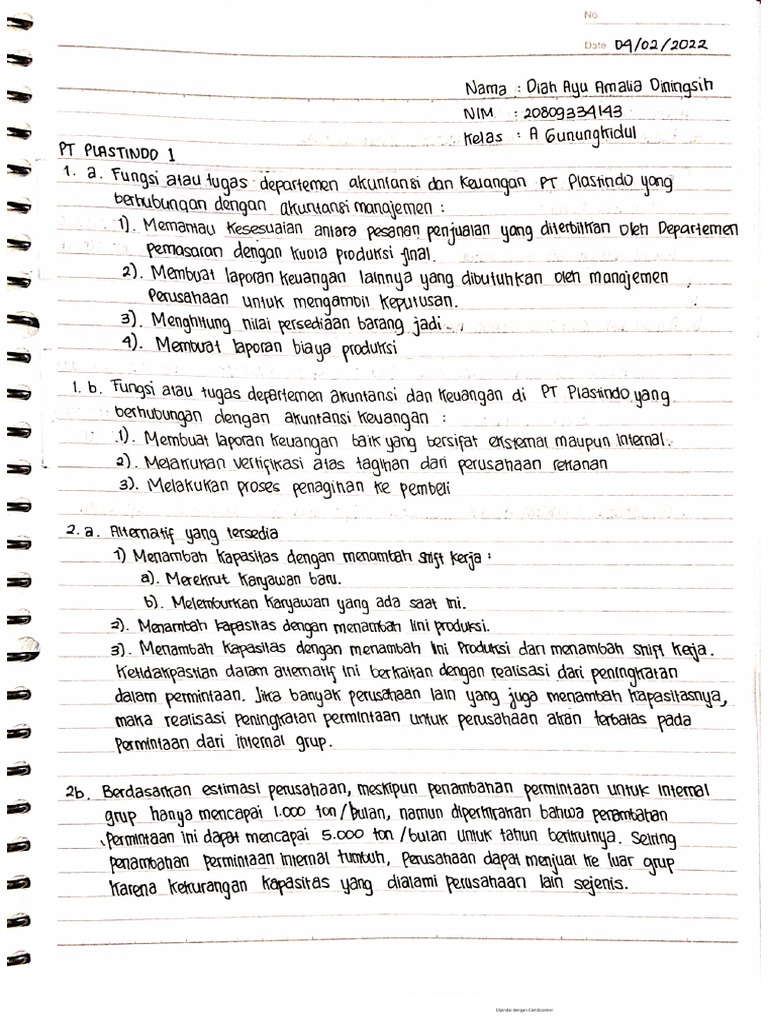 No
Date 09/02/2022
Nama : Diah Ayu Amalia Diningsih
NIM : 20809334143
Kelas : A Gunungkidul
PT PLASTINDO 1
1. a. Fungsi atau tugas departemen akuntansi dan Keuangan PT Plastindo yang
berhubungan dengan akuntansi manajemen :
1). Memantau kesesuaian antara pesanan penjualan yang diterbitkan oleh Departemen
pemasaran dengan kuota produksi final.
2). Membuat laporan keuangan lainnya yang dibutuhkan oleh manajemen
Perusahaan untuk mengambil keputusan.
3). Menghitung nilai persediaan barang jadi.
4). Membuat laporan biaya produksi
1. b. Fungsi atau tugas departemen akuntansi dan keuangan di PT Plastindo yang
berhubungan dengan akuntansi keuangan :
1). Membuat laporan keuangan baik yang bersifat eksternal maupun internal.
2). Melakukan vertifikasi atas tagihan dari perusahaan rekanan
3). Melakukan proses penagihan ke pembeli
2. a. Alternatif yang tersedia
1) Menambah kapasitas dengan menambah shift kerja :
a). Merekrut karyawan baru.
b). Melemburkan karyawan yang ada saat ini.
2). Menambah kapasitas dengan menambah lini produksi.
3). Menambah kapasitas dengan menambah lini Produksi dan menambah shift kerja.
Ketidakpastian dalam alternatif ini berkaitan dengan realisasi dari peningkatan
dalam permintaan. Jika banyak perusahaan lain yang juga menambah kapasitasnya,
maka realisasi peningkatan permintaan untuk perusahaan akan terbatas pada
Permintaan dari internal grup.
2b. Berdasarkan estimasi perusahaan, meskipun penambahan permintaan untuk internal
grup hanya mencapai 1.000 ton/bulan, namun diperkirakan bahwa penambahan
permintaan ini dapat mencapai 5.000 ton/bulan untuk tahun berikutnya. Seiring
penambahan permintaan internal tumbuh, Perusahaan dapat menjual ke luar grup
karena kekurangan kapasitas yang dialami perusahaan lain sejenis.
Dipindai dengan CamScanner